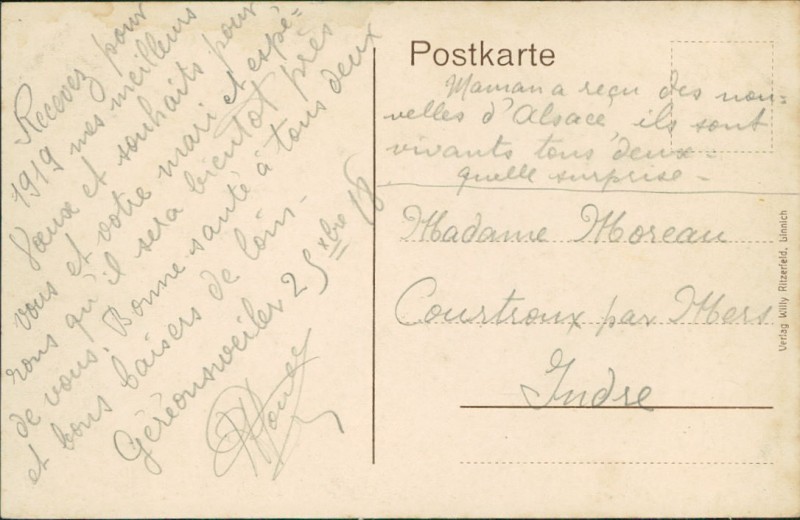 Recevez pour
1919 mes meilleurs
vœux et souhaits pour
vous et votre mari et espé-
rons qu'il sera bientot près
de vous. Bonne santé à tous deux
et bons baisers de loin.
Géréonsweiler 25 xbre 18
Postkarte
Maman a reçu des nou-
velles d'Alsace, ils sont
vivants tous deux -
quelle surprise -
Madame Moreau
Courtroux par Mers
Indre
Verlag Willy Ritzerfeld, Linnich